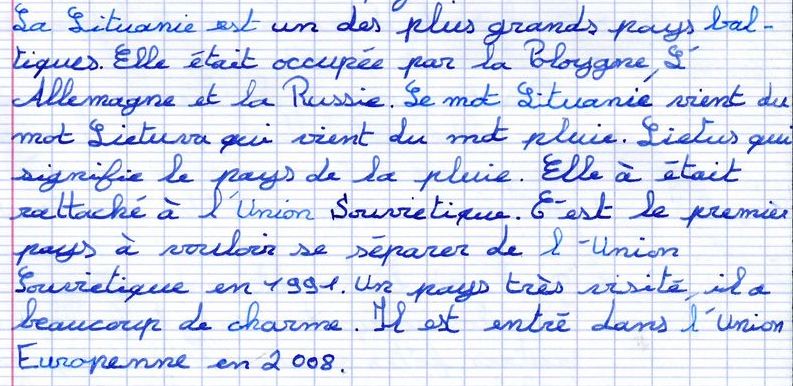 La Lituanie est un des plus grands pays bal-
tiques. Elle était occupée par la Ploygne, L'
Allemagne et la Russie. Le mot Lituanie vient du
mot Lietuva qui vient du mot pluie. Lietus qui
signifie le pays de la pluie. Elle à était
rattaché à l'Union Souvietique. C'est le premier
pays à vouloir se séparer de l'Union
Souvietique en 1991. Un pays très visité, il a
beaucoup de charme. Il est entré dans l'Union
Europenne en 2008.